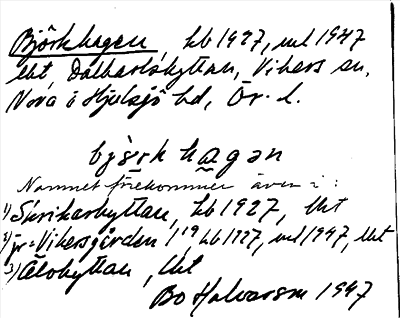 Björkhagen, hb 1927, ml 1947
lht Dalkarlshyttan, Vikers sn,
Nora o Hjulsjö bd, Ör. l.
björkhagen
Namnet förekommer även i:
1) Skrikarhyttan, hb 1927, lht
2) Vikersgården 1/9 hb 1927, ml 1947, lht
3) Älvhyttan, lht
Bo Halvarson 1947